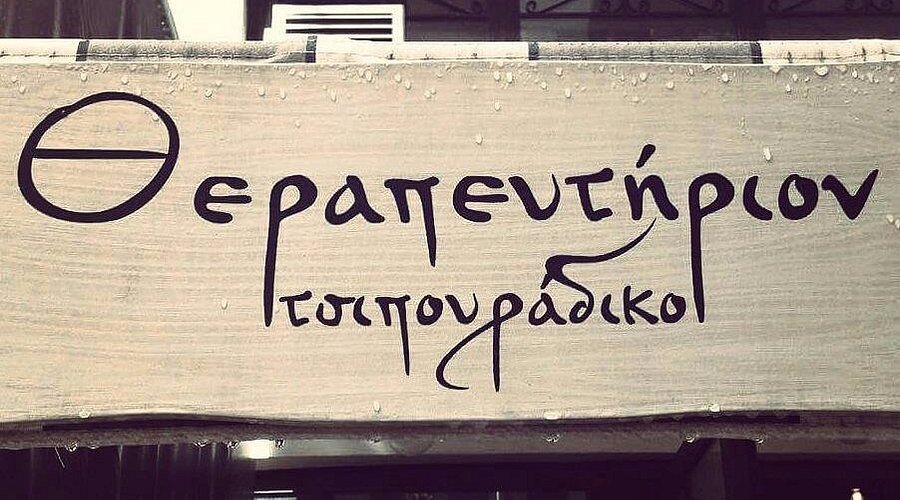 Θεραπευτήριον
τσιπουράδικο